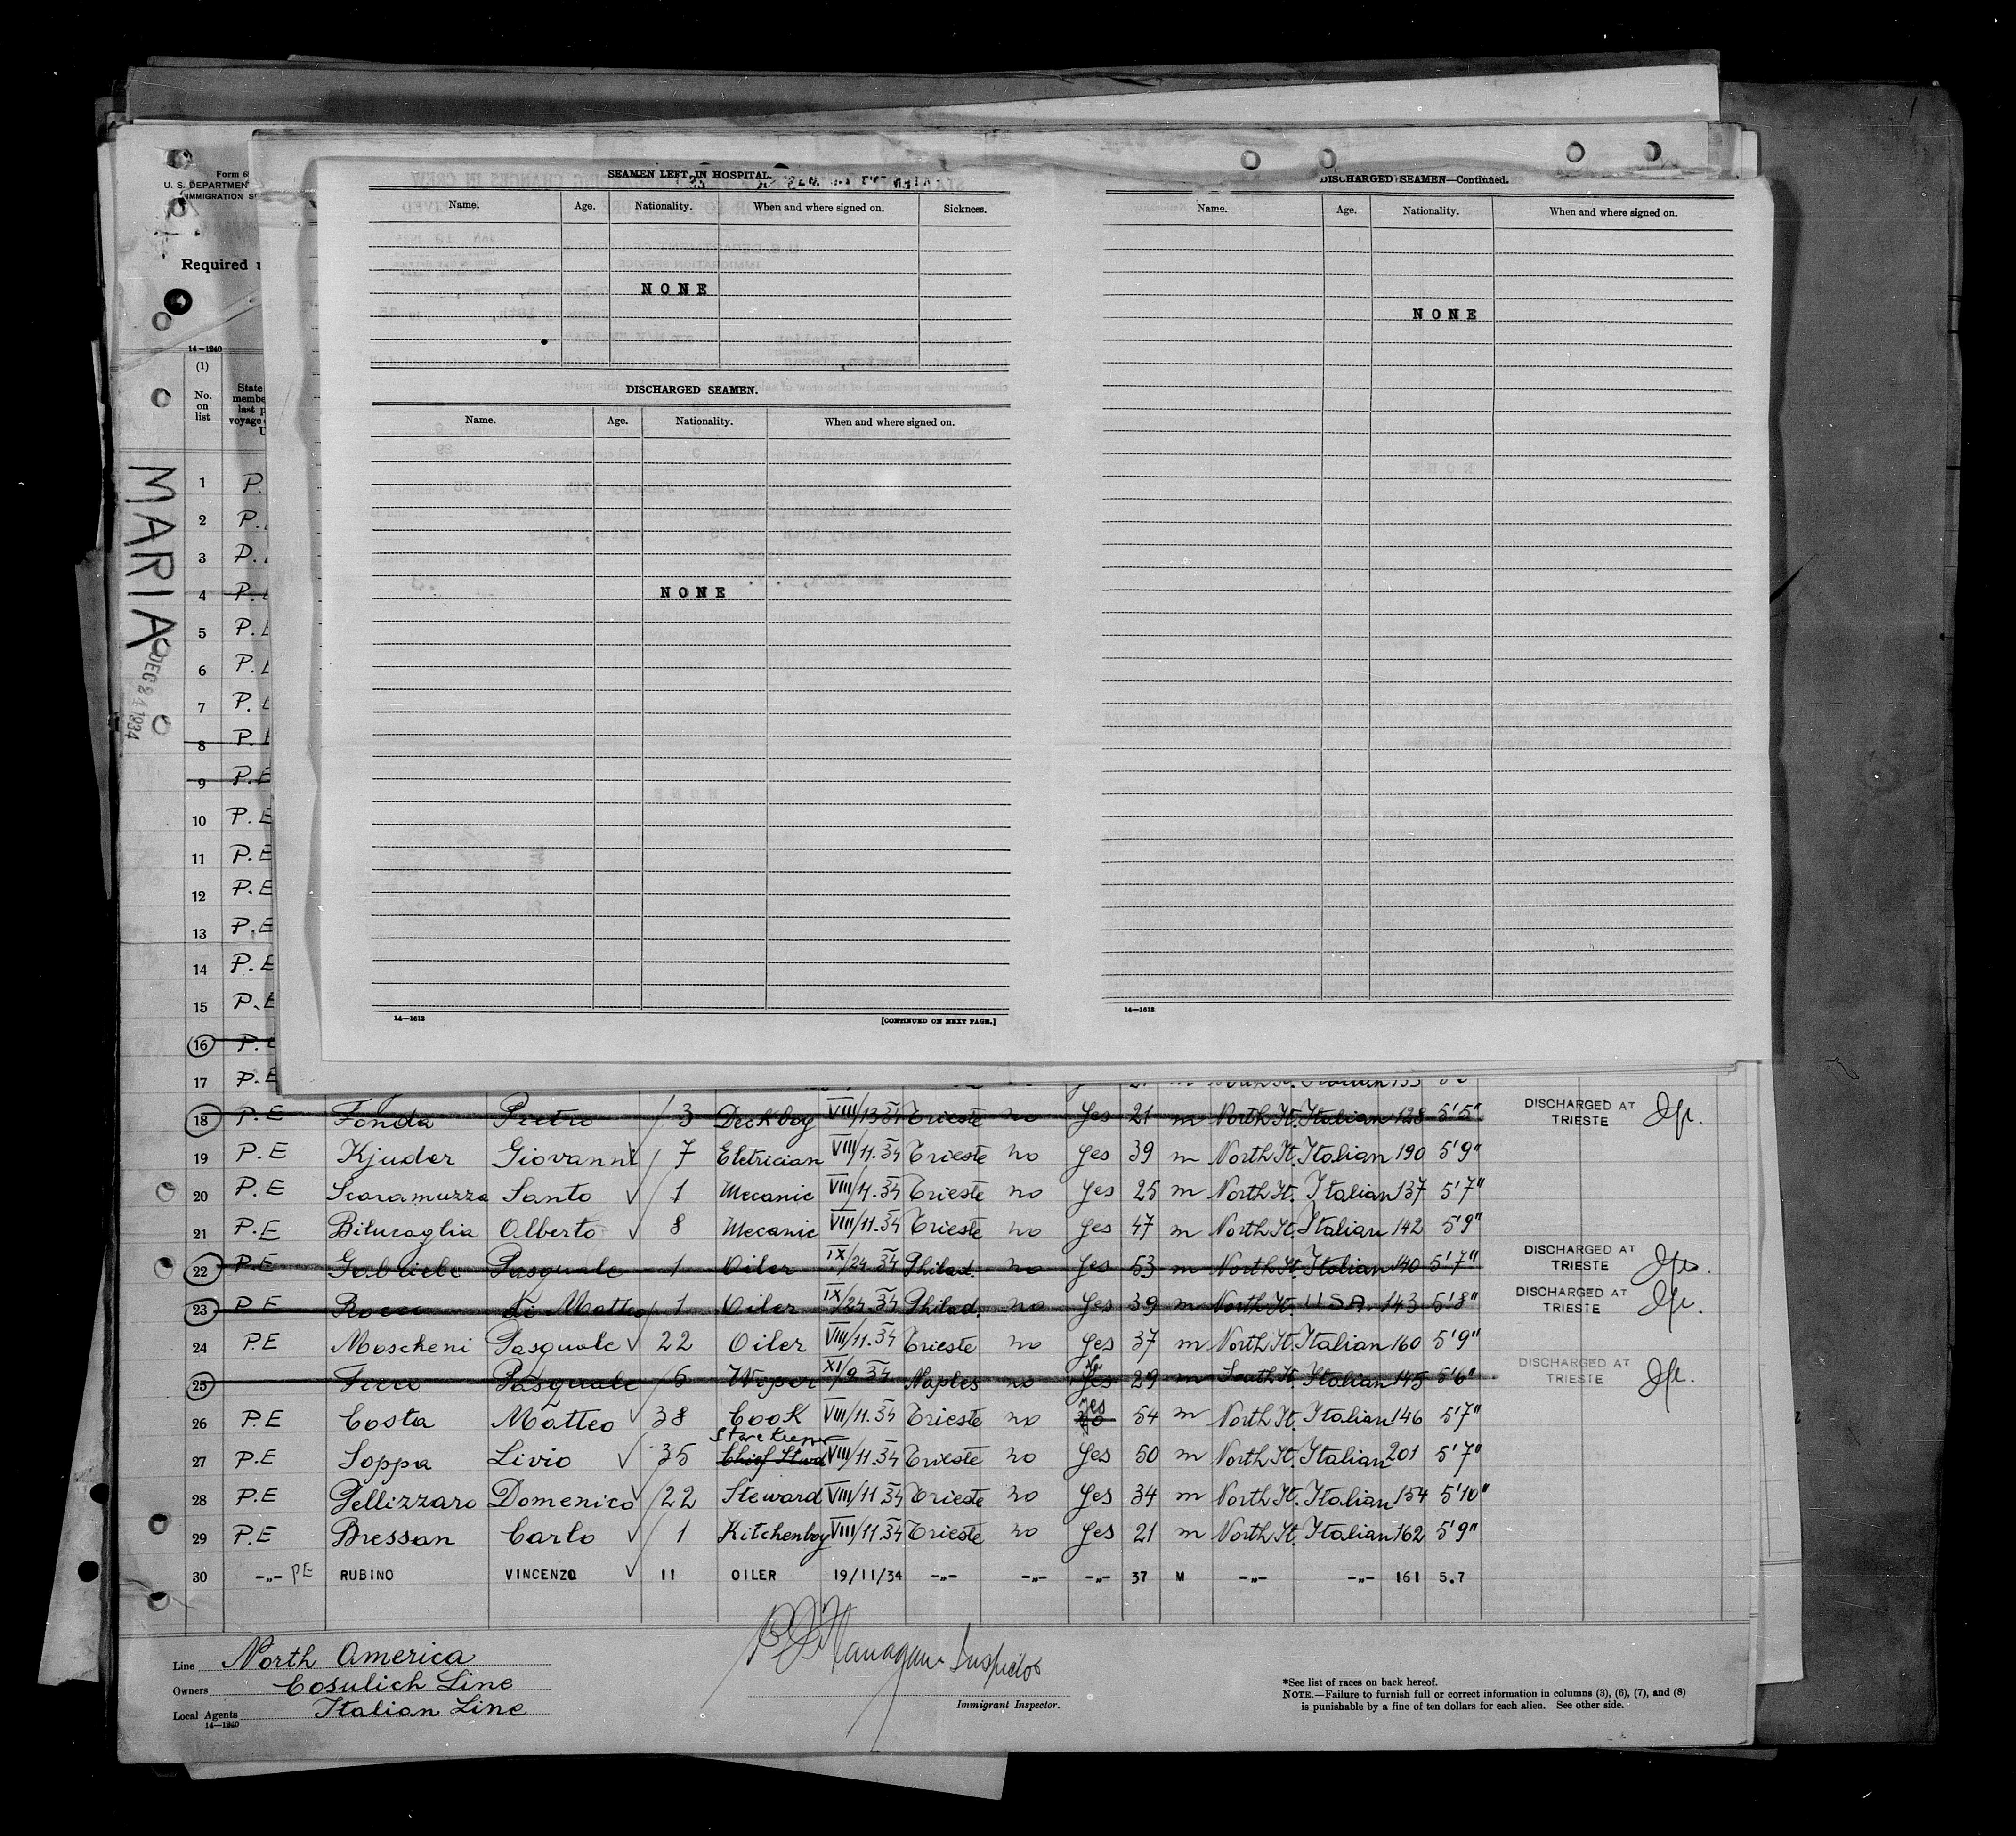 Form 6
U. S. DEPARTMENT
IMMIGRATION SE
Required
14—1240
(1)
No. on list
State
membe
last p
voyage
U
MARIA
DEC 24 1934
SEAMEN LEFT IN HOSPITAL.
Name. Age. Nationality. When and where signed on. Sickness.
NONE
DISCHARGED SEAMEN.
Name. Age. Nationality. When and where signed on.
NONE
14—1612 [CONTINUED ON NEXT PAGE.]
DISCHARGED SEAMEN—Continued.
Name. Age. Nationality. When and where signed on.
NONE
14—1612
1 P.
2 P.
3 P.
4 P.
5 P.E
6 P.
7 P.
8 P.
9 P.E
10 P.E
11 P.E
12 P.E
13 P.E
14 P.E
15 P.E
16 P.E
17 P.E
18 P.E Fonda Pietro 3 Deckboy VIII/13 34 Trieste no yes 21 m North It. Italian 128 5'5" DISCHARGED AT TRIESTE
19 P.E Kjuder Giovanni 7 Eletrician VIII/11.34 Trieste no yes 39 m North It. Italian 190 5'9"
20 P.E Scaramuzza Santo 1 Mecanic VIII/11.34 Trieste no yes 25 m North It. Italian 137 5'7"
21 P.E Bilucaglia Alberto 8 Mecanic VIII/11.34 Trieste no yes 47 m North It. Italian 142 5'9"
22 P.E Gabriele Pasquale 1 Oiler IX/24.34 Philad. no yes 53 m North It. Italian 140 5'7" DISCHARGED AT TRIESTE
23 P.E Rocco Di Matteo 1 Oiler IX/24.34 Philad. no yes 39 m North It. U.S.A. 143 5'8" DISCHARGED AT TRIESTE
24 P.E Moscheni Pasquale 22 Oiler VIII/11.34 Trieste no yes 37 m North It. Italian 160 5'9"
25 Pasquale 6 Wiper XI/9 34 Naples no yes 29 m South It. Italian 145 5'6" DISCHARGED AT TRIESTE
26 P.E Costa Matteo 38 Cook VIII/11.34 Trieste no yes 54 m North It. Italian 146 5'7"
Store Keeper
27 P.E Soppa Livio 35 Chief Stwd VIII/11.34 Trieste no yes 50 m North It. Italian 201 5'7"
28 P.E Pellizzaro Domenico 22 Steward VIII/11 34 Trieste no yes 34 m North It. Italian 154 5'10"
29 P.E Bressan Carlo 1 Kitchenboy VIII/11.34 Trieste no yes 21 m North It. Italian 162 5'9"
30 -"- PE RUBINO VINCENZO 11 OILER 19/11/34 -"- -"- -"- 37 M -"- -"- 161 5.7
Line North America
Owners Cosulich Line
Local Agents Italian Line
14—1240
Flanagan Inspector
Immigrant Inspector.
*See list of races on back hereof.
NOTE.—Failure to furnish full or correct information in columns (3), (6), (7), and (8)
is punishable by a fine of ten dollars for each alien. See other side.